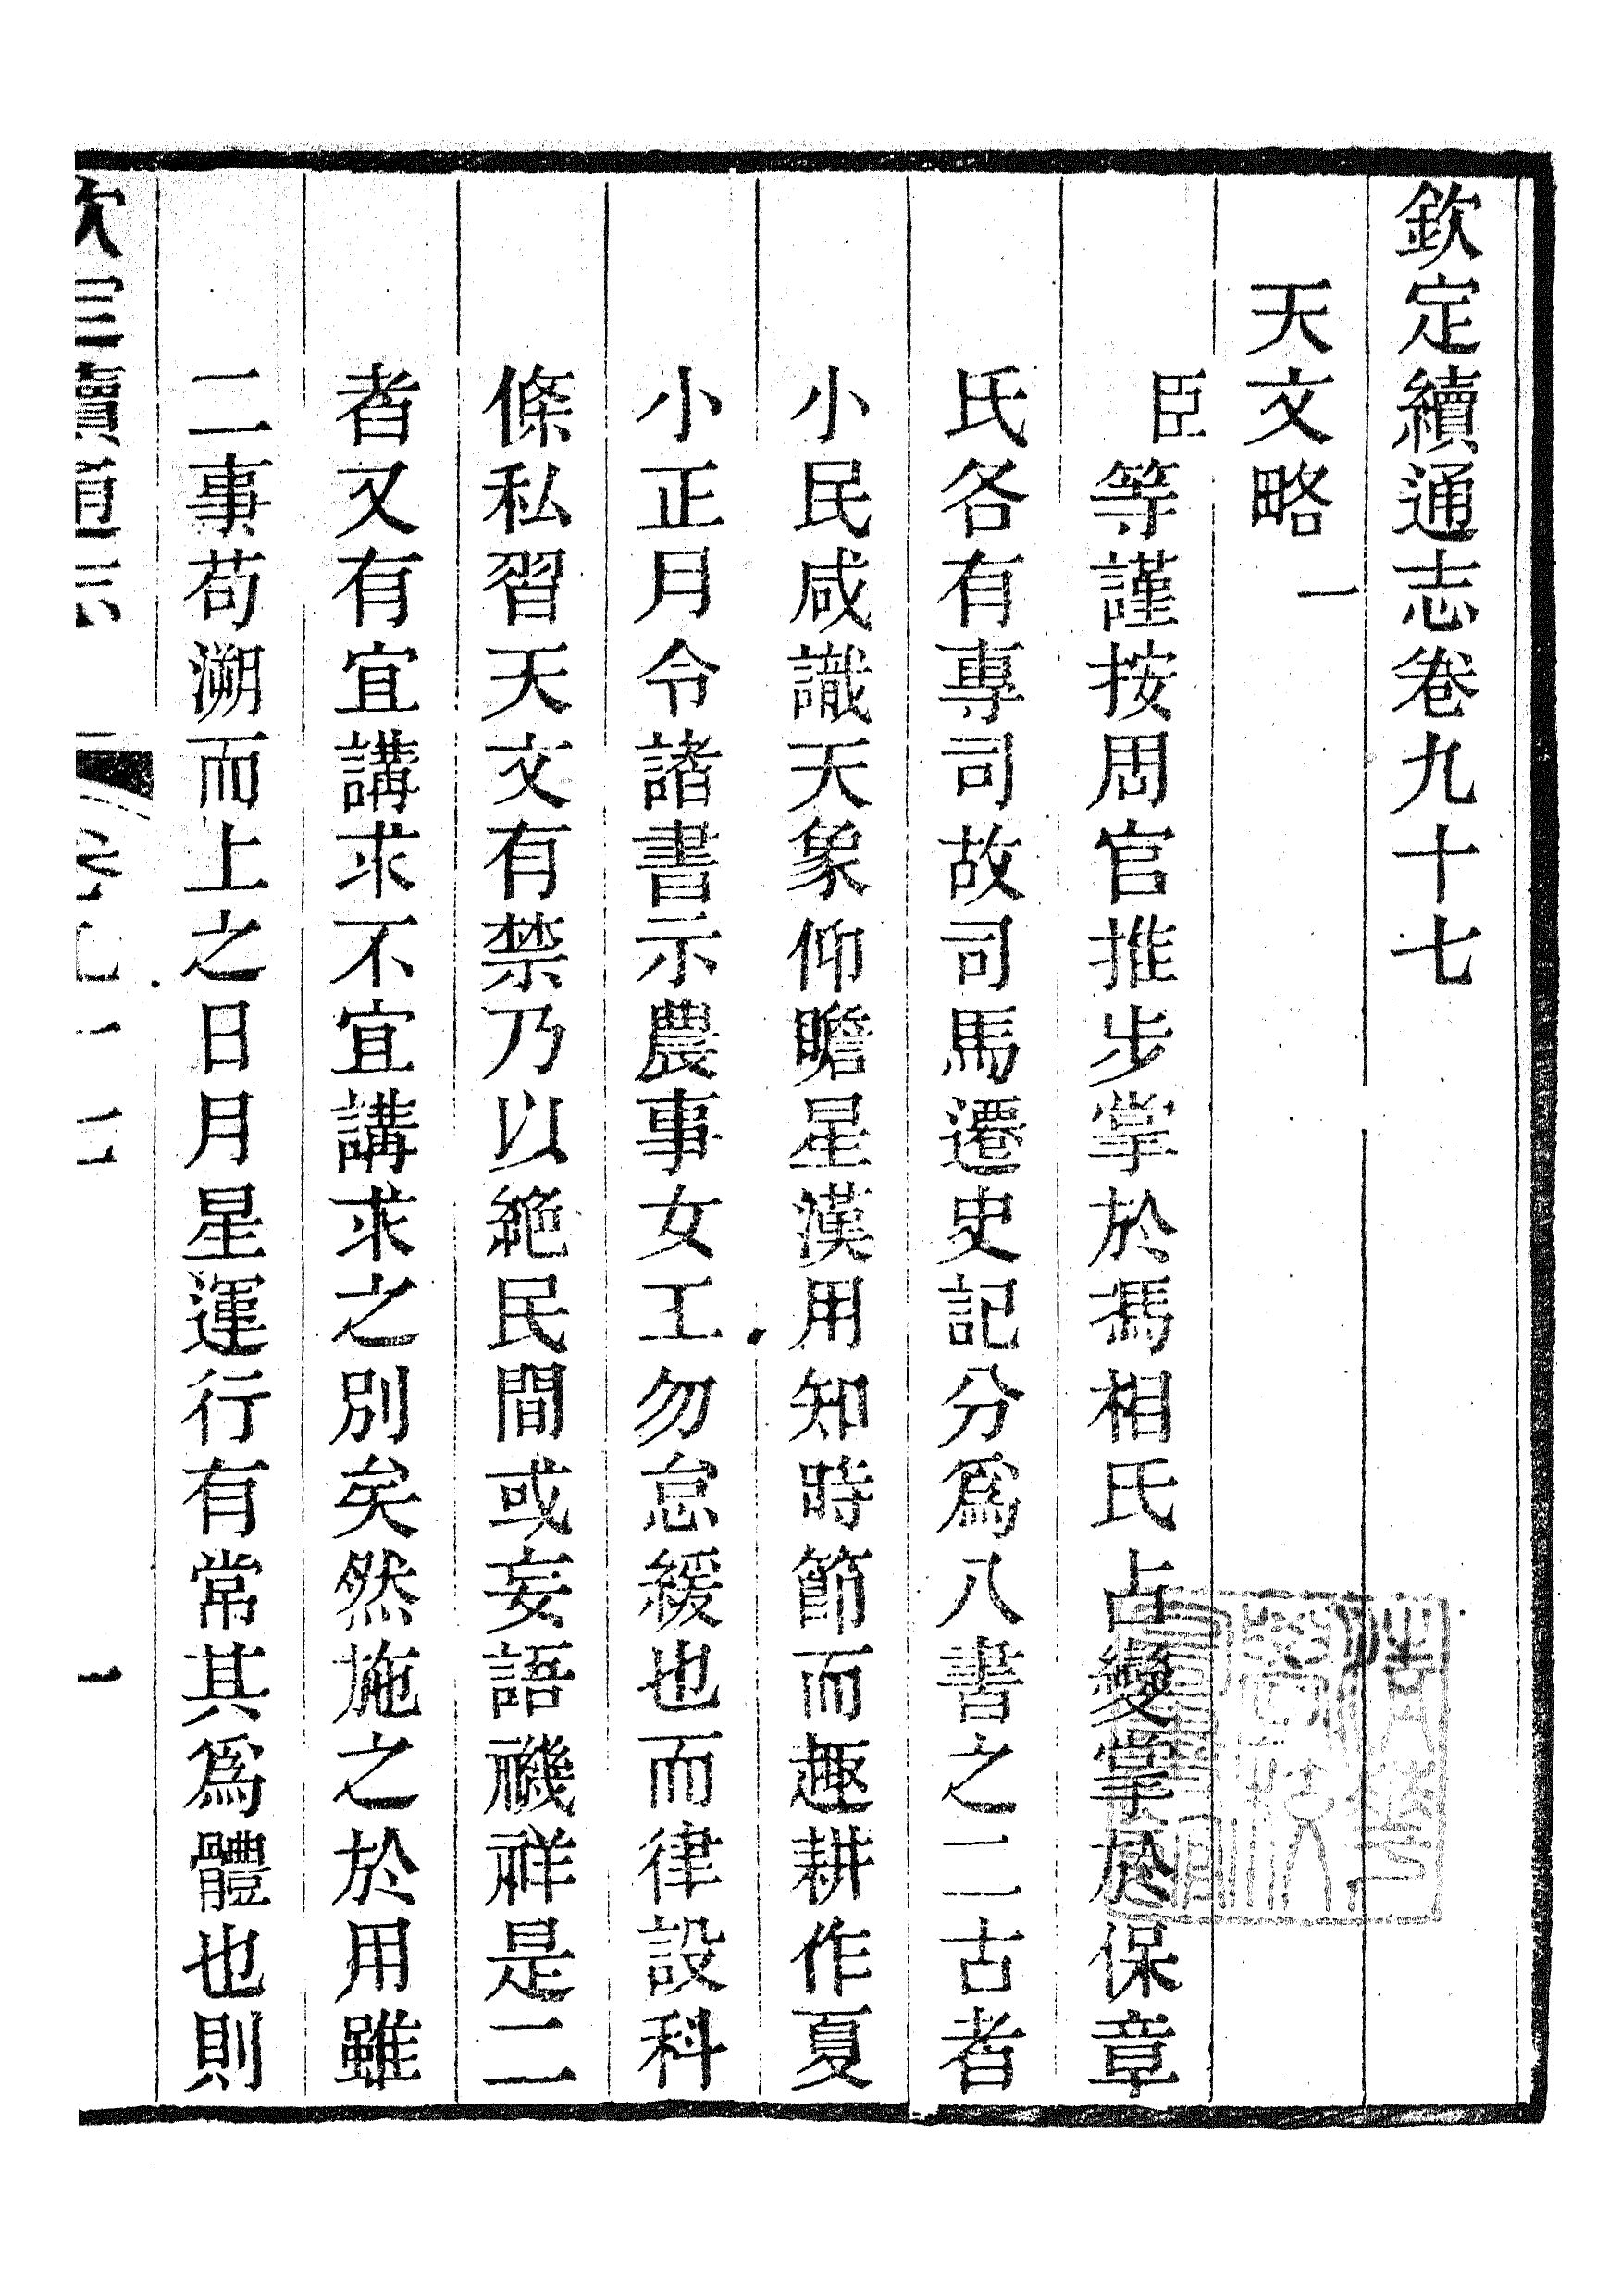 欽定續通志卷九十七
天文略一
臣等謹按周官推步掌於馮相氏占變掌於保章
氏各有專司故司馬遷史記分爲八書之二古者
小民咸識天象仰瞻星漢用知時節而趣耕作夏
小正月令諸書示農事女工勿怠緩也而律設科
條私習天文有禁乃以絕民間或妄語禨祥是二
者又有宜講求不宜講求之別矣然施之於用雖
二事苟溯而上之日月星運行有常其爲體也則
欽定續通志 卷九十七 一